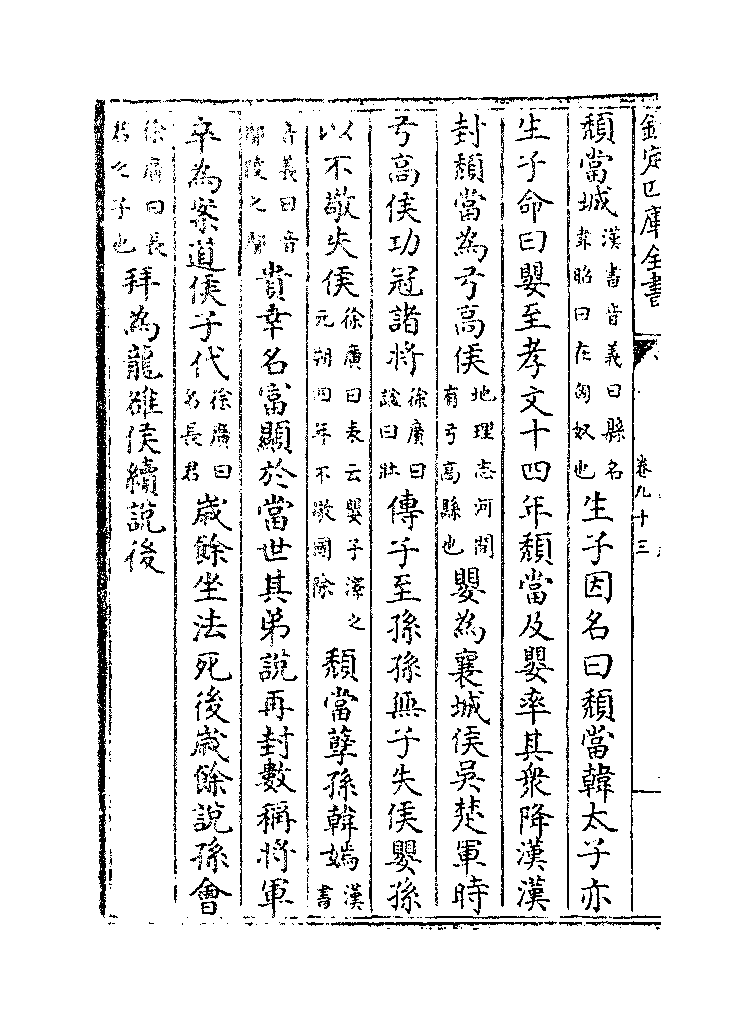 欽定四庫全書
卷九十三
頽當城漢書音義曰縣名韋昭曰在匈奴也生子因名曰頽當韓太子亦
生子命曰嬰至孝文十四年頽當及嬰率其衆降漢漢
封頽當為弓高侯地理志河間有弓高縣也嬰為襄城侯吳楚軍時
弓高侯功冠諸將徐廣曰諡曰壯傳子至孫孫無子失侯嬰孫
以不敬失侯徐廣曰表云嬰子澤之元朔四年不敬國除頽當孽孫韓嫣漢書
音義曰音鄢陵之鄢貴幸名富顯於當世其弟說再封數稱將軍
卒為案道侯子代徐廣曰名長君歲餘坐法死後歲餘說孫曾
徐廣曰長君之子也拜為龍雒侯續說後